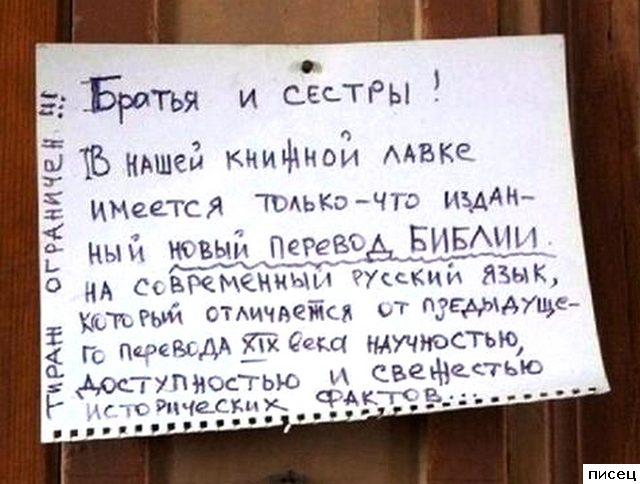 Братья и сестры!
В нашей книжной лавке
имеется только-что издан-
ный новый перевод БИБЛИИ.
на современный русский язык,
который отличается от предыдуще-
го перевода XIX века научностью,
доступностью и свежестью
исторических фактов...
ТИРАЖ ОГРАНИЧЕН!!!
писец